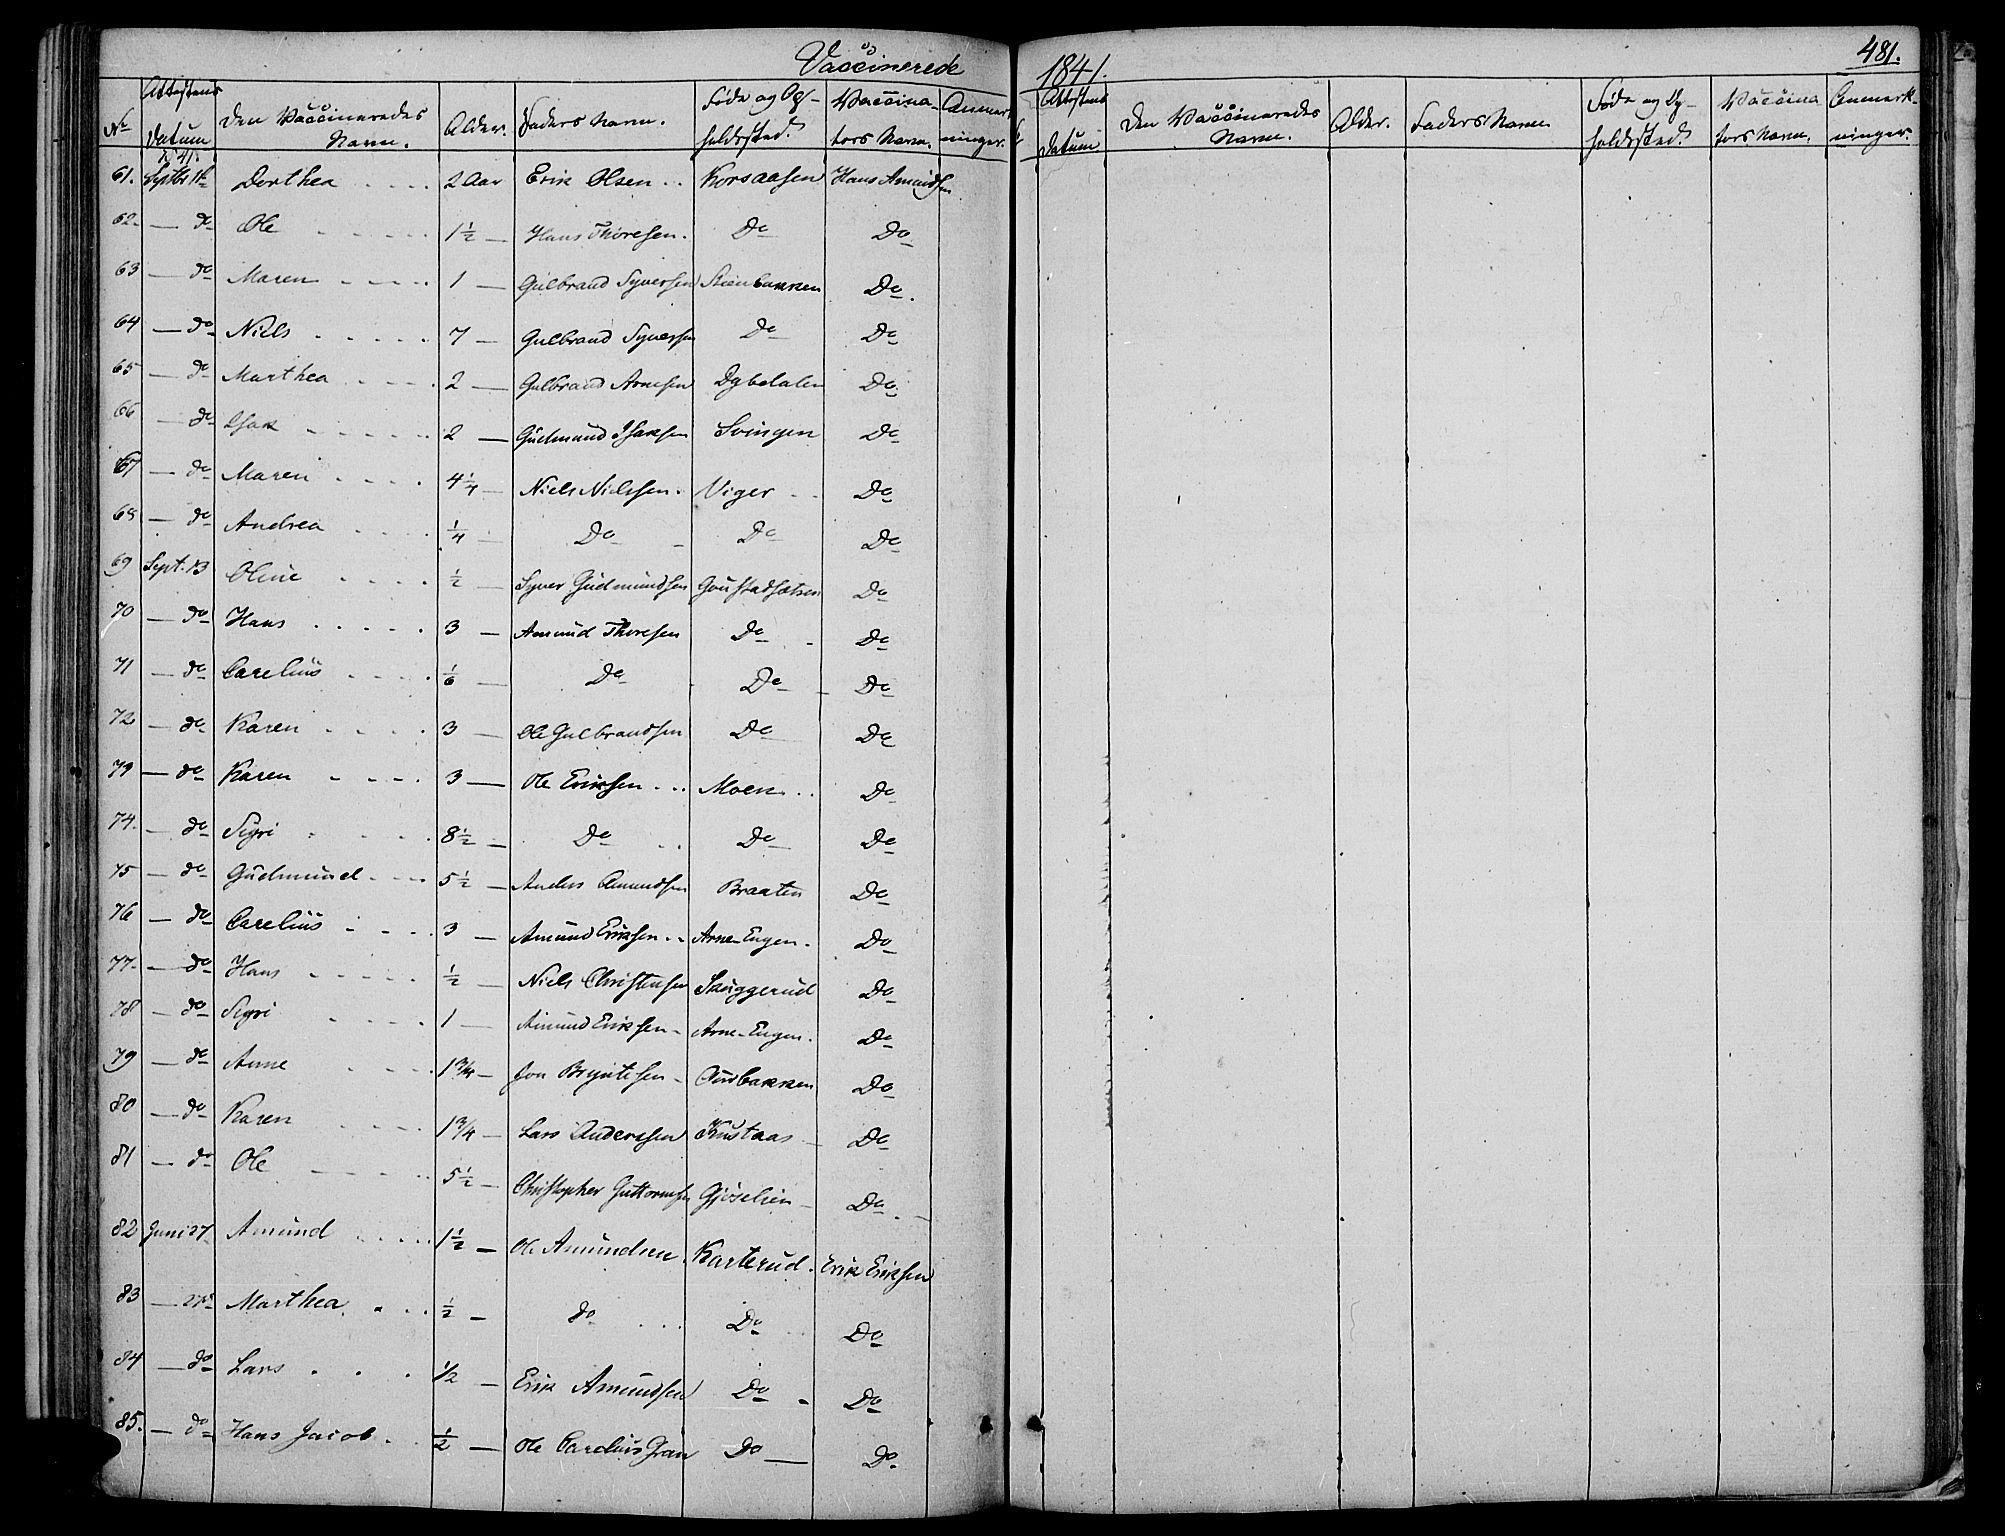 Vaccinerede 1841.
481.
No Attestens Datum Den Vaccineredes Navn. Alder. Faders Navn. Føde og Op- holdssted. Vaccina- tors Navn. Anmerk- ninger.
Attestens Datum Den Vaccineredes Navn. Alder. Faders Navn Føde og Op- holdssted. Vaccina- tors Navn. Anmerk- ninger.
1841.
61. Septbr 11te Dorthea 2 Aar Erik Olsen Korsaasen Hans Amundsen
62. — do Ole 1½ — Hans Thoresen. Do Do
63 — do Maren 1 — Gulbrand Syversen Steenbakken Do
64 — do Niels 7 — Gulbrand Syversen Do Do
65 — do Marthea 2 — Gulbrand Arnesen Dybdalen Do
66 — do Isak 2 — Gudmund Isaksen Svingen Do
67 — do Maren 4¼ — Niels Nielssen. Viger Do
68 — do Andrea ¼ — Do Do Do
69 Sept. 13 Oline ½ — Syver Gudmundsen Goustadsætren Do
70 — do Hans 3 — Amund Thoresen Do Do
71 — do Carelius 1/6 — Do Do Do
72 — do Karen 3 — Ole Gulbrandsen Do Do
79 — do Karen 3 — Ole Eriksen Moen Do
74. — do Sigri 8½ — Do Do Do
75 — do Gudmund 5½ — Anders Amundsen Braaten Do
76 — do Carelius 3 — Amund Eriksen Arne-Engen. Do
77. — do Hans ½ — Niels Christensen Skuggerud Do
78 — do Sigri 1 — Amund Eriksen Arne-Engen. Do
79 — do Anne 1¾ — Jon Bryntesen Do
80 — do Karen 1¾ — Lars Anderssen Do
81 — do Ole 5½ — Christopher Guttormsen Gjøselien Do
82 Juni 27 Amund 1½ — Ole Amundsen Karterud. Erik Eriksen
83 — 27de Marthea ½ — do Do Do
84 — do Lars 1/2 — Erik Amundsen Do Do
85. — do Hans Jacob ½ — Ole Carelius Gran Do Do